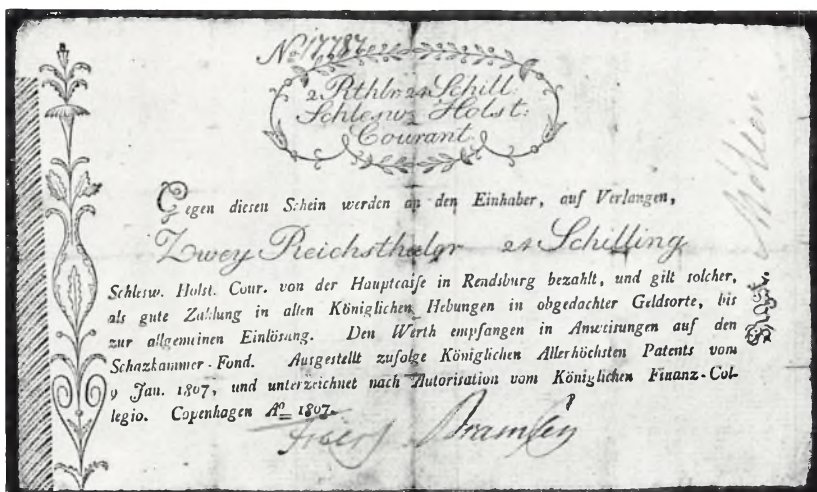 No. 17787
2 Rthlr 24 Schill:
Schlesw: Holst:
Courant
Gegen diesen Schein werden an den Einhaber, auf Verlangen,
Zwey Reichsthaler 24 Schilling
Schlesw. Holst. Cour. von der Hauptcasse in Rendsburg bezahlt, und gilt solcher,
als gute Zahlung in allen Königlichen Hebungen in obgedachter Geldsorte, bis
zur allgemeinen Einlösung. Den Werth empfangen in Anweisungen auf den
Schazkammer-Fond. Ausgestellt zufolge Königlichen Allerhöchsten Patents vom
9 Jan. 1807, und unterzeichnet nach Autorisation vom Königlichen Finanz-Col-
legio. Copenhagen Aº 1807.